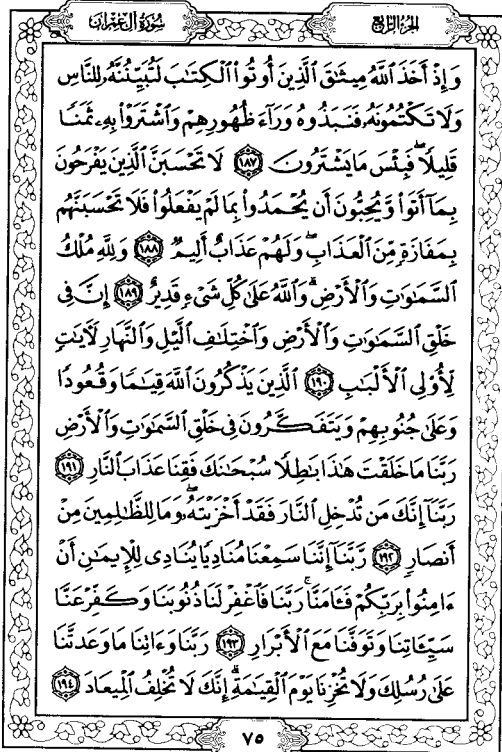 سُورَةُ آلِ عِمْرَان
الجُزءُ الرَّابِعُ
وَإِذْ أَخَذَ ٱللَّهُ مِيثَٰقَ ٱلَّذِينَ أُوتُوا۟ ٱلْكِتَٰبَ لَتُبَيِّنُنَّهُۥ لِلنَّاسِ
وَلَا تَكْتُمُونَهُۥ فَنَبَذُوهُ وَرَآءَ ظُهُورِهِمْ وَٱشْتَرَوْا۟ بِهِۦ ثَمَنًا
قَلِيلًا ۖ فَبِئْسَ مَا يَشْتَرُونَ ١٨٧ لَا تَحْسَبَنَّ ٱلَّذِينَ يَفْرَحُونَ
بِمَآ أَتَوا۟ وَّيُحِبُّونَ أَن يُحْمَدُوا۟ بِمَا لَمْ يَفْعَلُوا۟ فَلَا تَحْسَبَنَّهُم
بِمَفَازَةٍ مِّنَ ٱلْعَذَابِ ۖ وَلَهُمْ عَذَابٌ أَلِيمٌ ١٨٨ وَلِلَّهِ مُلْكُ
ٱلسَّمَٰوَٰتِ وَٱلْأَرْضِ ۗ وَٱللَّهُ عَلَىٰ كُلِّ شَىْءٍ قَدِيرٌ ١٨٩ إِنَّ فِى
خَلْقِ ٱلسَّمَٰوَٰتِ وَٱلْأَرْضِ وَٱخْتِلَٰفِ ٱلَّيْلِ وَٱلنَّهَارِ لَءَايَٰتٍ
لِّأُو۟لِى ٱلْأَلْبَٰبِ ١٩٠ ٱلَّذِينَ يَذْكُرُونَ ٱللَّهَ قِيَٰمًا وَقُعُودًا
وَعَلَىٰ جُنُوبِهِمْ وَيَتَفَكَّرُونَ فِى خَلْقِ ٱلسَّمَٰوَٰتِ وَٱلْأَرْضِ
رَبَّنَا مَا خَلَقْتَ هَٰذَا بَٰطِلًا سُبْحَٰنَكَ فَقِنَا عَذَابَ ٱلنَّارِ ١٩١
رَبَّنَآ إِنَّكَ مَن تُدْخِلِ ٱلنَّارَ فَقَدْ أَخْزَيْتَهُۥ ۖ وَمَا لِلظَّٰلِمِينَ مِنْ
أَنصَارٍ ١٩٢ رَّبَّنَآ إِنَّنَا سَمِعْنَا مُنَادِيًا يُنَادِى لِلْإِيمَٰنِ أَنْ
ءَامِنُوا۟ بِرَبِّكُمْ فَـَٔامَنَّا ۚ رَبَّنَا فَٱغْفِرْ لَنَا ذُنُوبَنَا وَكَفِّرْ عَنَّا
سَيِّـَٔاتِنَا وَتَوَفَّنَا مَعَ ٱلْأَبْرَارِ ١٩٣ رَبَّنَا وَءَاتِنَا مَا وَعَدتَّنَا
عَلَىٰ رُسُلِكَ وَلَا تُخْزِنَا يَوْمَ ٱلْقِيَٰمَةِ ۗ إِنَّكَ لَا تُخْلِفُ ٱلْمِيعَادَ ١٩٤
٧٥